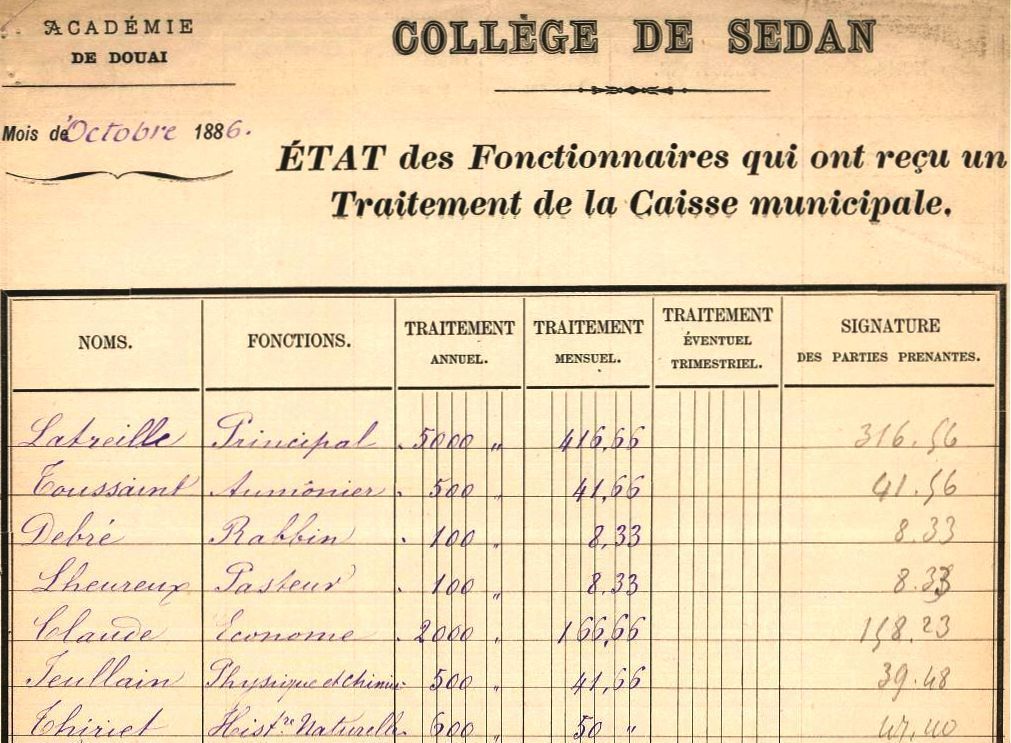 ACADÉMIE
DE DOUAI
COLLÈGE DE SEDAN
Mois de Octobre 1886.
ÉTAT des Fonctionnaires qui ont reçu un
Traitement de la Caisse municipale.
NOMS. FONCTIONS. TRAITEMENT ANNUEL. TRAITEMENT MENSUEL. TRAITEMENT ÉVENTUEL TRIMESTRIEL. SIGNATURE DES PARTIES PRENANTES.
Latreille Principal 5000 " 416,66 316.56
Toussaint Aumônier 500 " 41,66 41.56
Debré Rabbin 100 " 8,33 8.33
Lheureux Pasteur 100 " 8,33 8.33
Claude Econome 2000 " 166,66 158.23
Teullain Physique et chimie 500 " 41,66 39.48
Thiriet Hist.re Naturelle 600 " 50 " 47.40